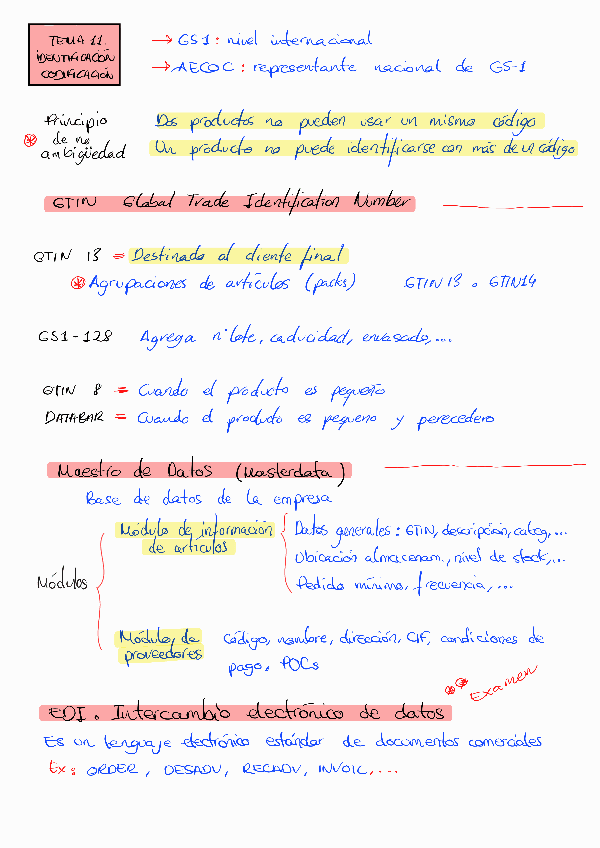 TEMA 11.
IDENTIFICACIÓN
CODIFICACIÓN
→ GS1: nivel internacional
→ AECOC: representante nacional de GS-1
Principio
de no
ambigüedad
Dos productos no pueden usar un mismo código
Un producto no puede identificarse con más de un código
GTIN Global Trade Identification Number
GTIN 13 = Destinado al cliente final
Agrupaciones de artículos (packs) GTIN 13 o GTIN14
GS1-128 Agrega nº lote, caducidad, envasado,...
GTIN 8 = Cuando el producto es pequeño
DATABAR = Cuando el producto es pequeño y perecedero
Maestro de Datos (Masterdata)
Base de datos de la empresa
Módulos
Módulo de información
de artículos
Datos generales: GTIN, descripción, categ,...
Ubicación almacenam., nivel de stock,...
Pedido mínimo, frecuencia,...
Módulo de
proveedores
Código, nombre, dirección, CIF, condiciones de
pago, POCs
Examen
EDI. Intercambio electrónico de datos
Es un lenguaje electrónico estándar de documentos comerciales
Ex: ORDER, DESADV, RECADV, INVOIC,...